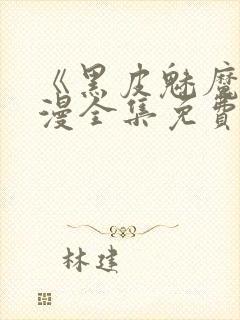 《黑皮魅魔
漫全集免費
林建